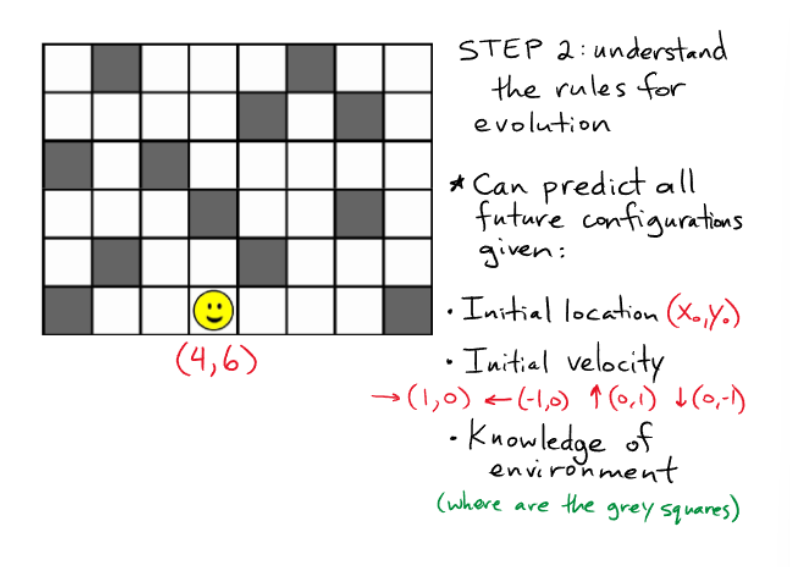 STEP 2: understand
the rules for
evolution
* Can predict all
future configurations
given:
• Initial location (x₀,y₀)
(4,6)
• Initial velocity
→(1,0) ←(-1,0) ↑(0,1) ↓(0,-1)
• Knowledge of
environment
(where are the grey squares)